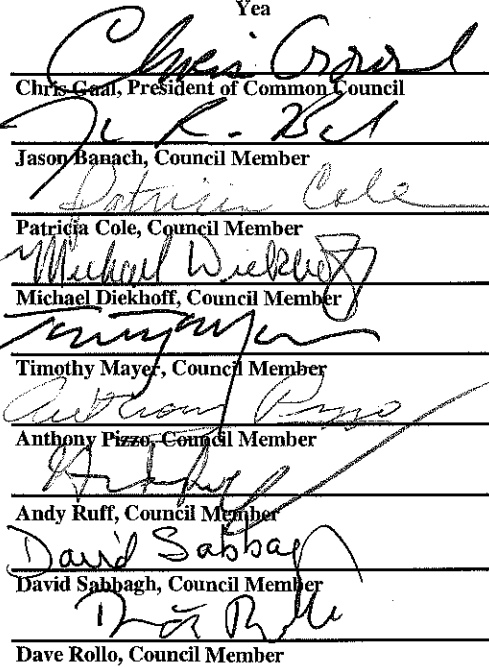 Yea
Chris Gaal
Chris Gaal, President of Common Council
Jason Banach, Council Member
Patricia Cole
Patricia Cole, Council Member
Michael Diekhoff
Michael Diekhoff, Council Member
Timothy Mayer, Council Member
Anthony Pizzo
Anthony Pizzo, Council Member
Andy Ruff, Council Member
David Sabbagh
David Sabbagh, Council Member
Dave Rollo
Dave Rollo, Council Member